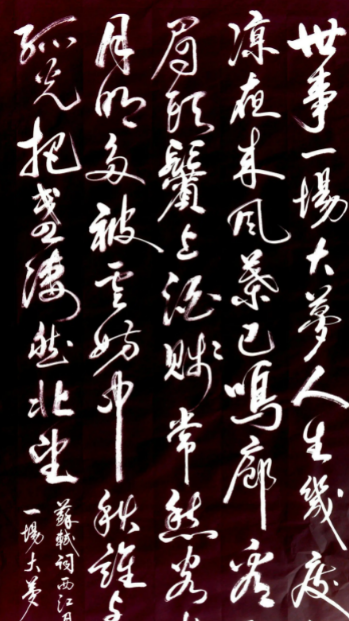 世事一場大夢人生幾度
涼夜來風葉已鳴廊看
眉頭鬢上酒賤常愁客
月明多被雲妨中秋誰與
孤光把盞淒然北望
蘇軾詞西江月
一場大夢